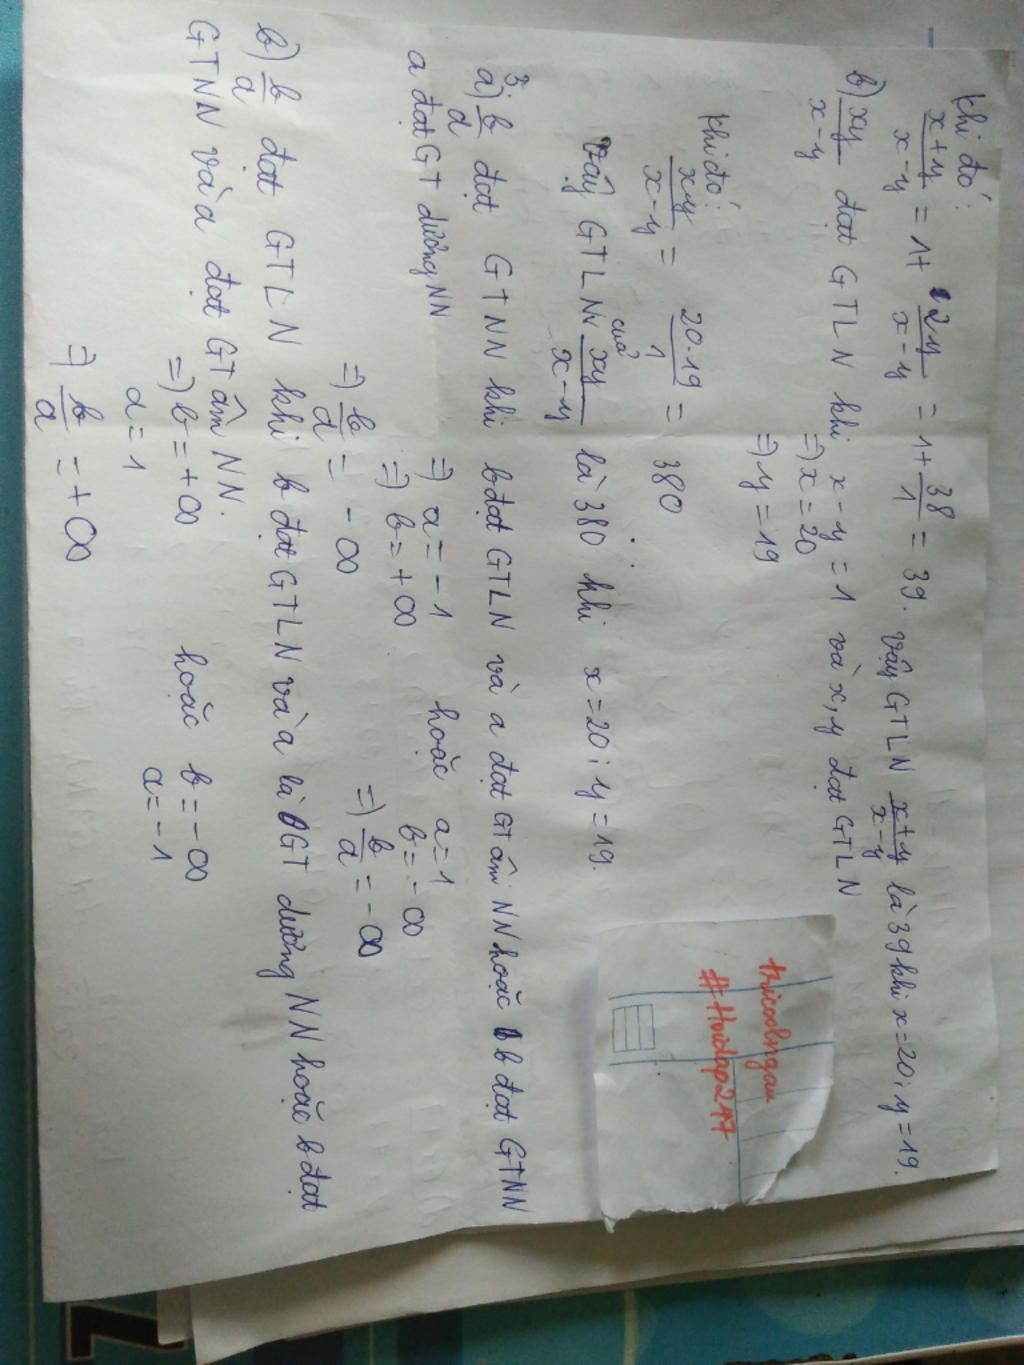 Khi đó:
x+y/x-y = 1+ 2y/x-y = 1+ 38/1 = 39. Vậy GTLN x+y/x-y là 39 khi x=20; y=19.
b) xy/x-y đạt GTLN khi x-y=1 và x,y đạt GTLN
=) x=20
=) y=19
Khi đó:
xy/x-y = 20.19/1 = 380
Vậy GTLN của xy/x-y là 380 khi x=20; y=19.
3.
a) b/a đạt GTNN khi b đạt GTLN và a đạt GT âm NN hoặc b đạt GTNN
a đạt GT dương NN
=) a=-1 hoặc a=1
=) b=+∞ b=-∞
=) b/a = -∞ =) b/a = -∞
b) b/a đạt GTLN khi b đạt GTLN và a là GT dương NN hoặc b đạt
GTNN và a đạt GT âm NN.
=) b=+∞ hoặc b=-∞
a=1 a=-1
=) b/a = +∞
thicoolngau
#Hoidap247